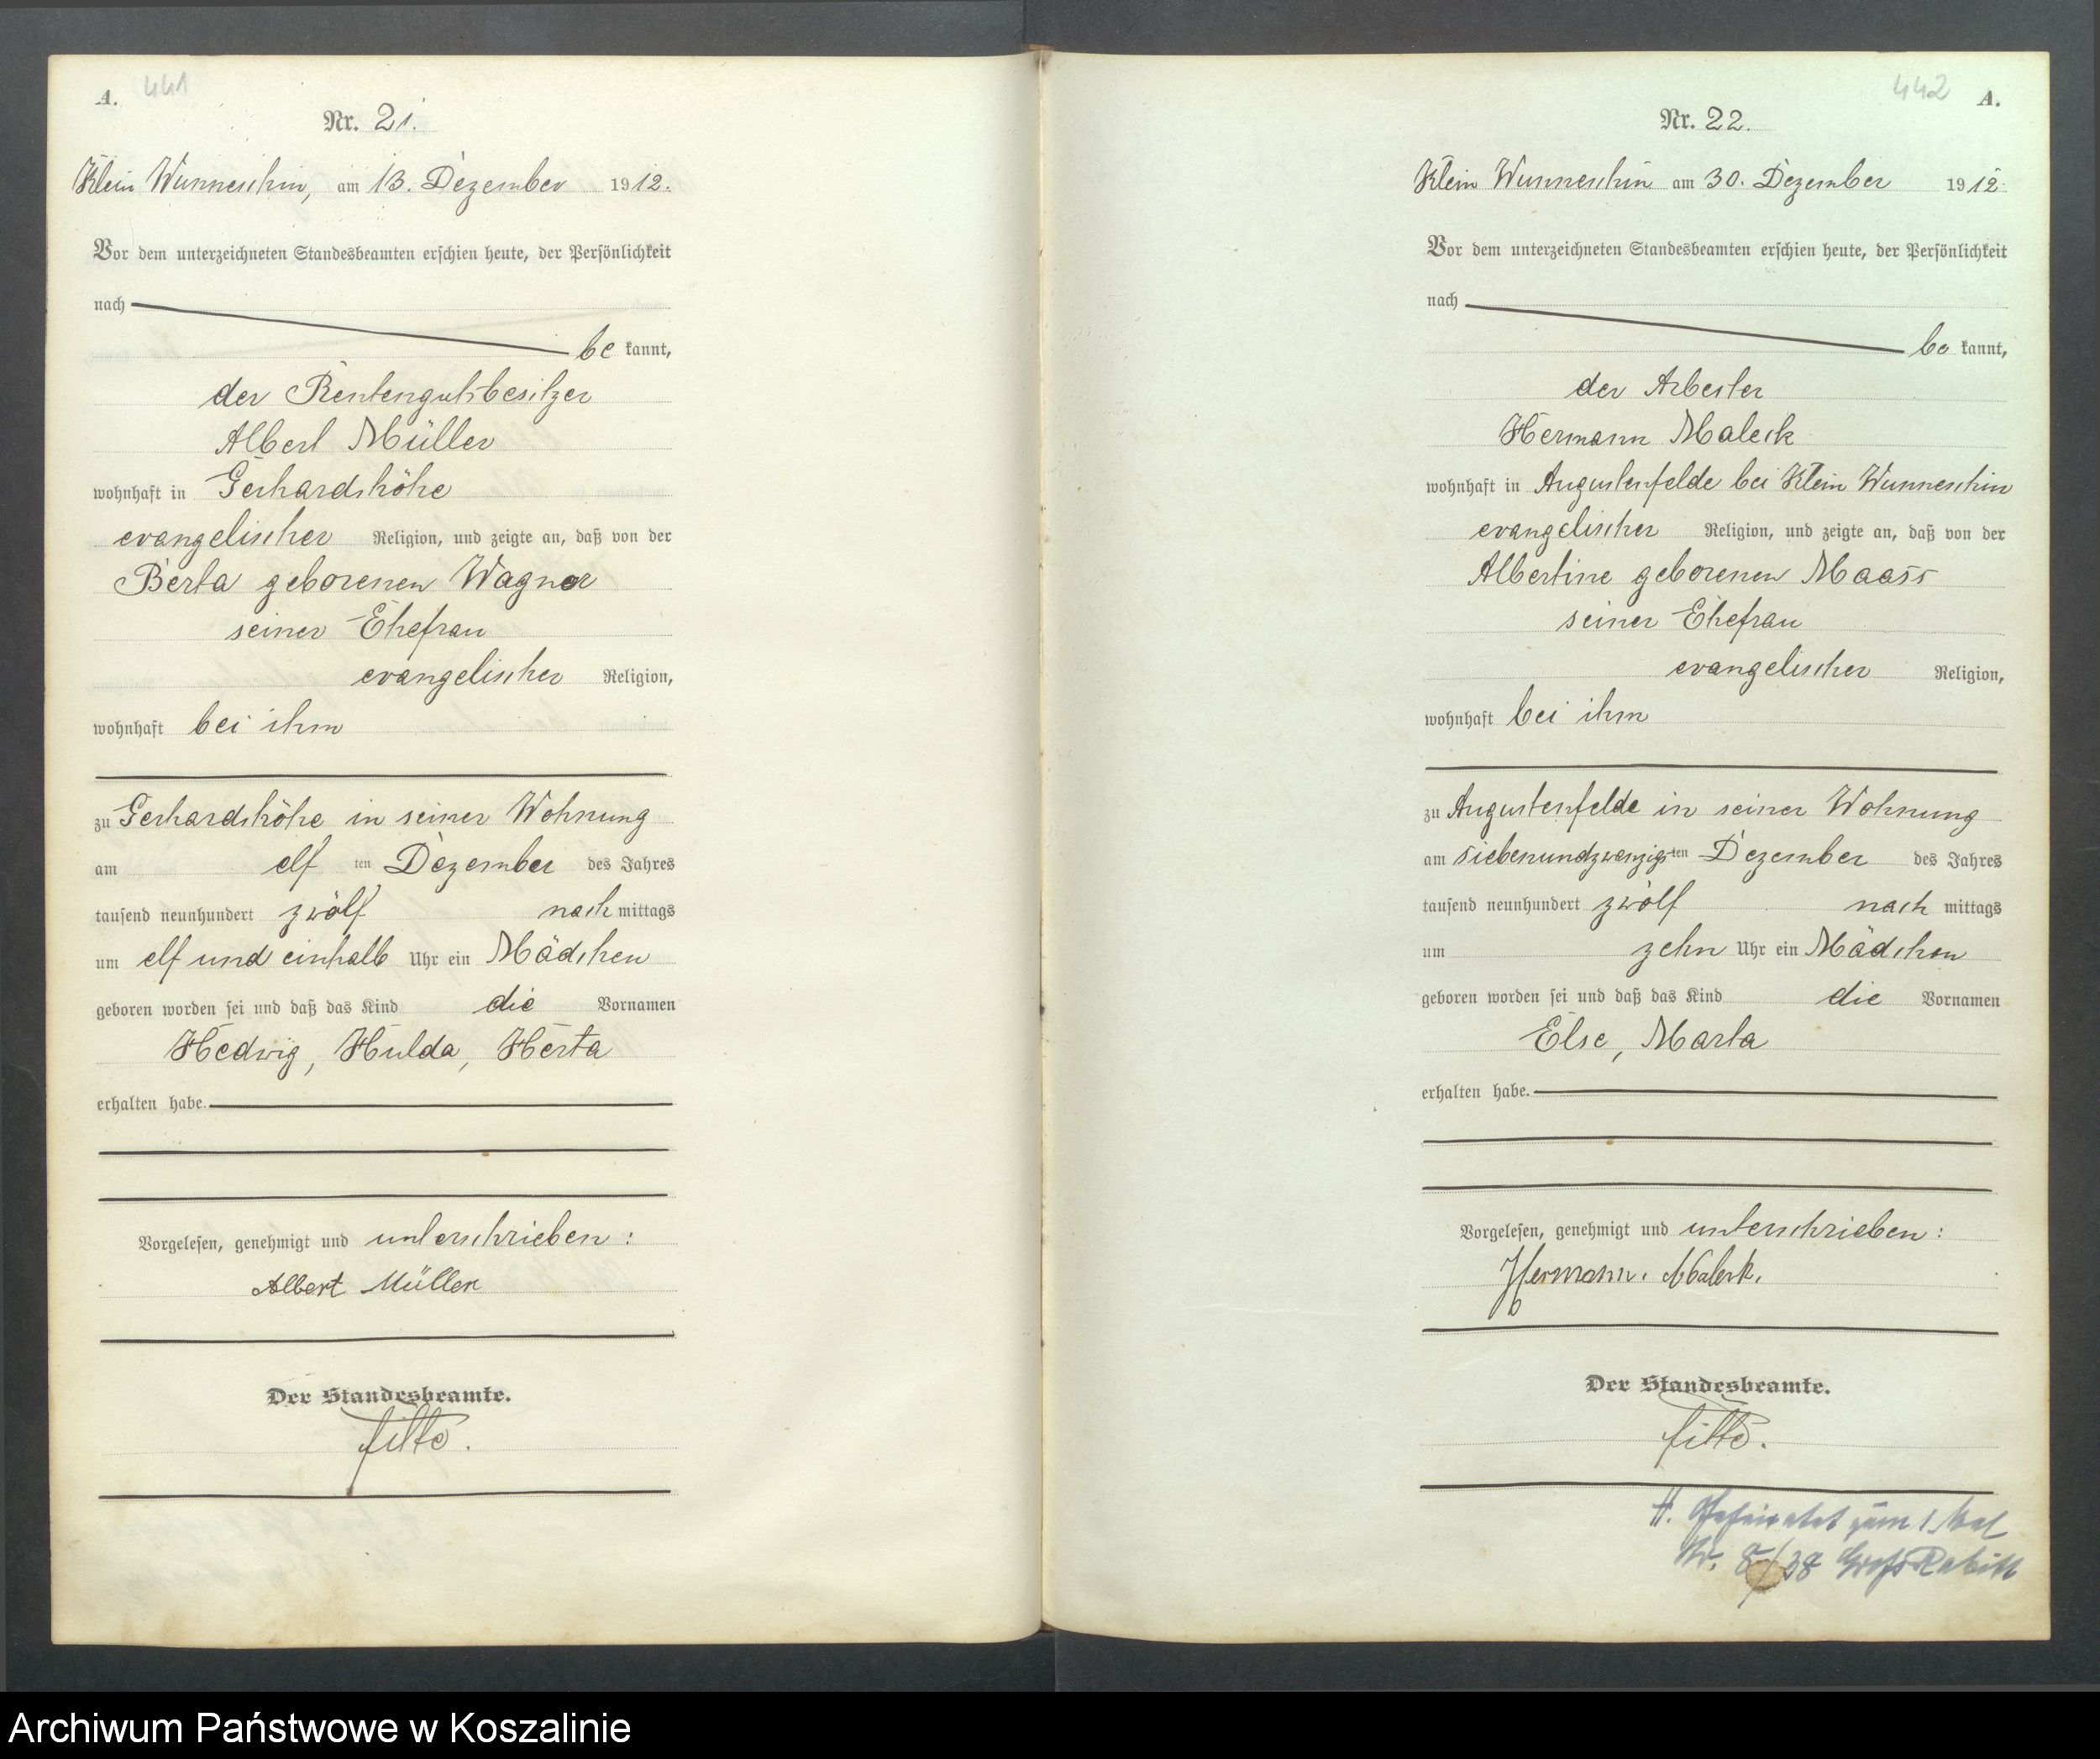 A. 441
Nr. 21.
Klein Wunneschin, am 13. Dezember 1912.
Vor dem unterzeichneten Standesbeamten erschien heute, der Persönlichkeit
nach
be kannt,
der Rentengutsbesitzer
Albert Müller
wohnhaft in Gerhardshöhe
evangelischer Religion, und zeigte an, daß von der
Berta geborenen Wagner
seiner Ehefrau
evangelischer Religion,
wohnhaft bei ihm
zu Gerhardshöhe in seiner Wohnung
am elf ten Dezember des Jahres
tausend neunhundert zwölf nach mittags
um elf und einhalb Uhr ein Mädchen
geboren worden sei und daß das Kind die Vornamen
Hedwig, Hulda, Herta
erhalten habe.
Vorgelesen, genehmigt und unterschrieben:
Albert Müller
Der Standesbeamte.
442 A.
Nr. 22.
Klein Wunneschin am 30. Dezember 1912.
Vor dem unterzeichneten Standesbeamten erschien heute, der Persönlichkeit
nach
be kannt,
der Arbeiter
Hermann Maleck
wohnhaft in Augustenfelde bei Klein Wunneschin
evangelischer Religion, und zeigte an, daß von der
Albertine geborenen Maass
seiner Ehefrau
evangelischer Religion,
wohnhaft bei ihm
zu Augustenfelde in seiner Wohnung
am siebenundzwanzigsten Dezember des Jahres
tausend neunhundert zwölf nach mittags
um zehn Uhr ein Mädchen
geboren worden sei und daß das Kind die Vornamen
Else, Marta
erhalten habe.
Vorgelesen, genehmigt und unterschrieben:
Hermann. Maleck.
Der Standesbeamte.
Geheiratet zum 1. Mal
Nr. 8/38 Groß Rakitt
Archiwum Państwowe w Koszalinie